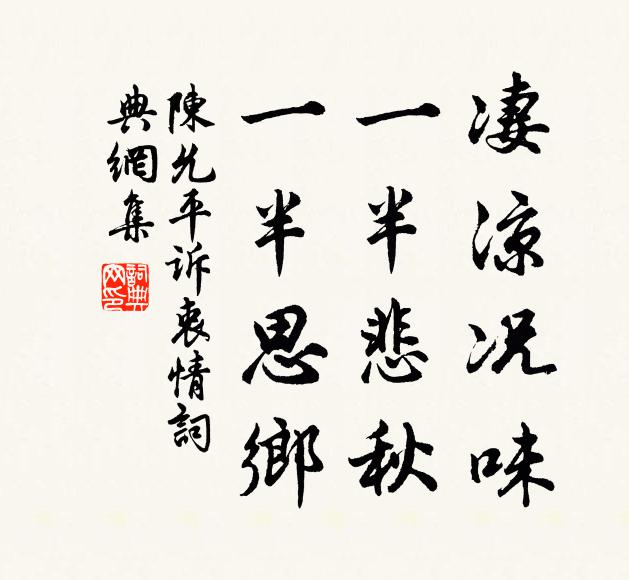 凄涼况味
一半悲秋
一半思鄉
陳允平訴衷情詞
典網集
詞典網印